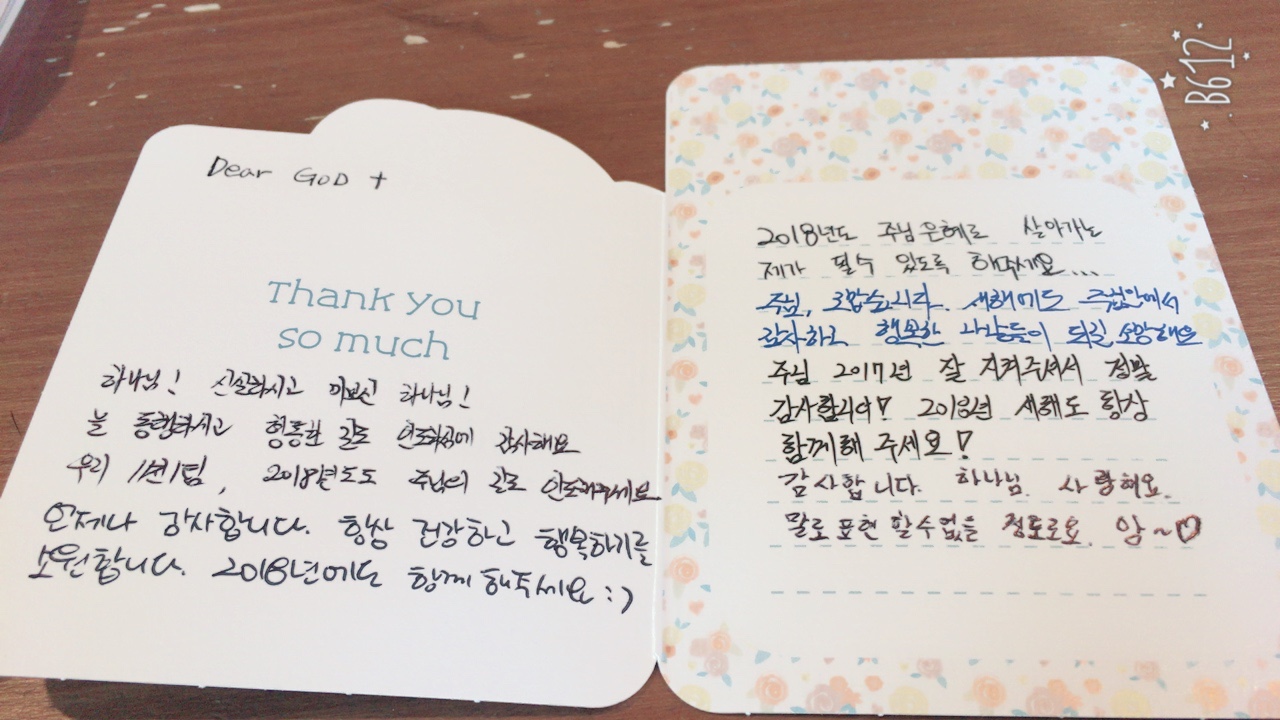 Dear GOD +
Thank you
so much
하나님! 신실하시고 미쁘신 하나님!
늘 동행하시고 형통한 길로 인도하심에 감사해요
우리 1번1팀, 2018년도도 주님의 길로 인도해주세요
언제나 감사합니다. 항상 건강하고 행복하기를
소원합니다. 2018년에도 함께 해주세요 :)
2018년도 주님 은혜로 살아가는
제가 될수 있도록 해주세요...
주님, 고맙습니다. 새해에도 주님안에서
감사하고 행복한 사람들이 되길 소망해요
주님 2017년 잘 지켜주셔서 정말
감사합니다! 2018년 새해도 항상
함께해 주세요!
감사합니다. 하나님. 사랑해요.
말로 표현 할수없을 정도로요. 앙~♡
B612